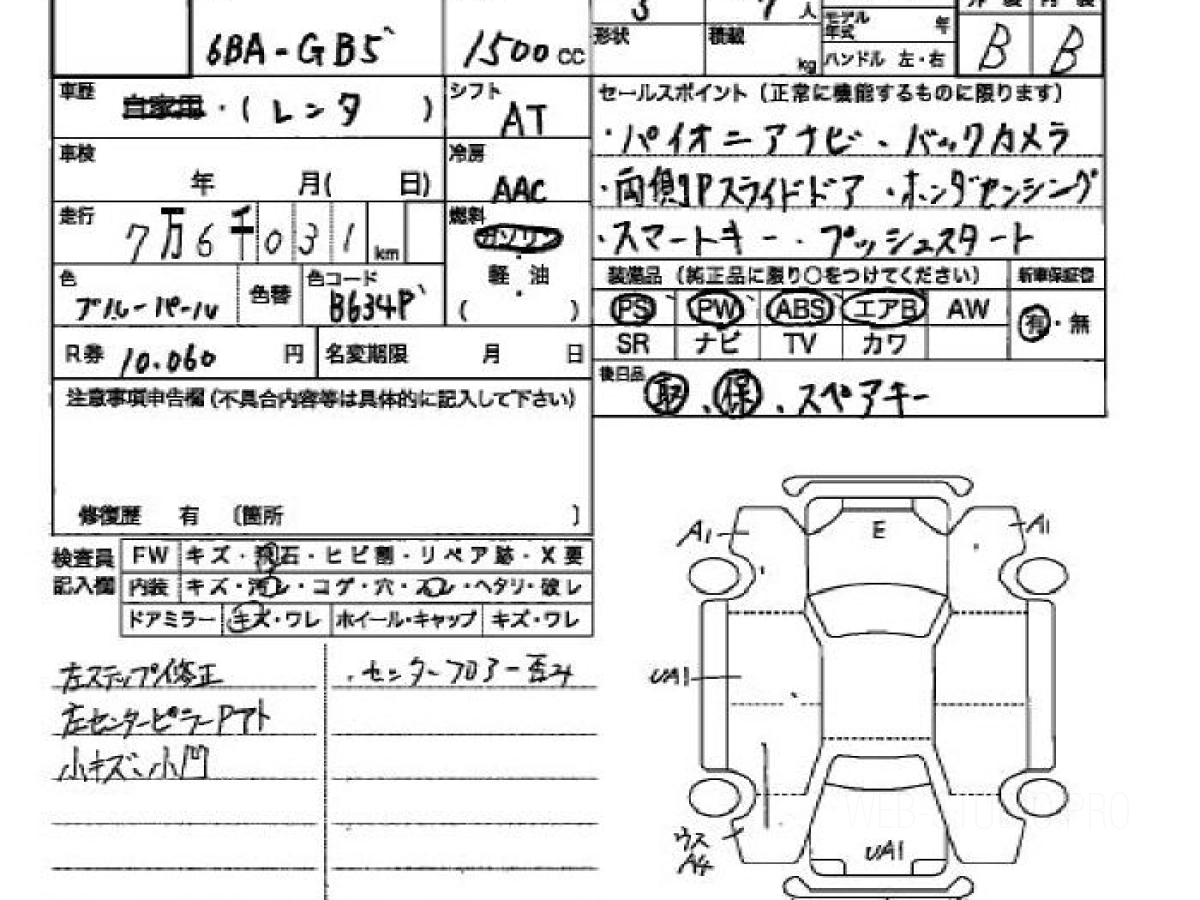 3 7 人 モデル年式 年 外装 内装
6BA-GB5 1500 cc 形状 積載 kg ハンドル 左・右 B B
車歴 自家用・(レンタ) シフト AT
セールスポイント(正常に機能するものに限ります)
・パイオニアナビ、バックカメラ
車検 年 月( 日) 冷房 AAC
・両側Pスライドドア・ホンダセンシング
走行 7万6千031km 燃料 ガソリン
・スマートキー・プッシュスタート
軽油
( )
色 ブルーパール 色替 色コード B634P
装備品(純正品に限り○をつけてください) 新車保証書
PS PW ABS エアB AW 有・無
SR ナビ TV カワ
R券 10.060円 名変期限 月 日
後日品 取、保、スペアキー
注意事項申告欄(不具合内容等は具体的に記入して下さい)
修復歴 有 〔箇所 〕
検査員記入欄
FW キズ・飛石・ヒビ割・リペア跡・X要
内装 キズ・汚レ・コゲ・穴・スレ・ヘタリ・破レ
ドアミラー キズ・ワレ ホイール・キャップ キズ・ワレ
左ステップ修正
左センターピラーPアト
小キズ、小凹
・センターフロアー歪み
E
A1
A1
UA1
ウス
A4
UA1
WEB-STUDIO.PRO